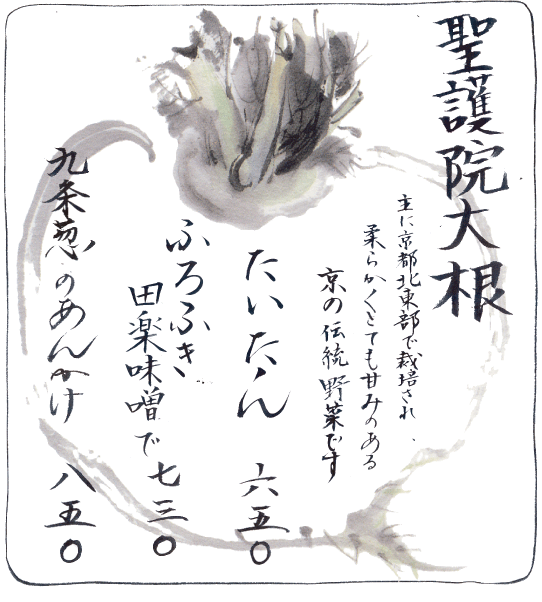 聖護院大根
主に京都北東部で栽培され、
柔らかくとても甘みのある
京の伝統野菜です
たいたん 六五〇
ふろふき
田楽味噌で 七三〇
九条葱のあんかけ 八五〇